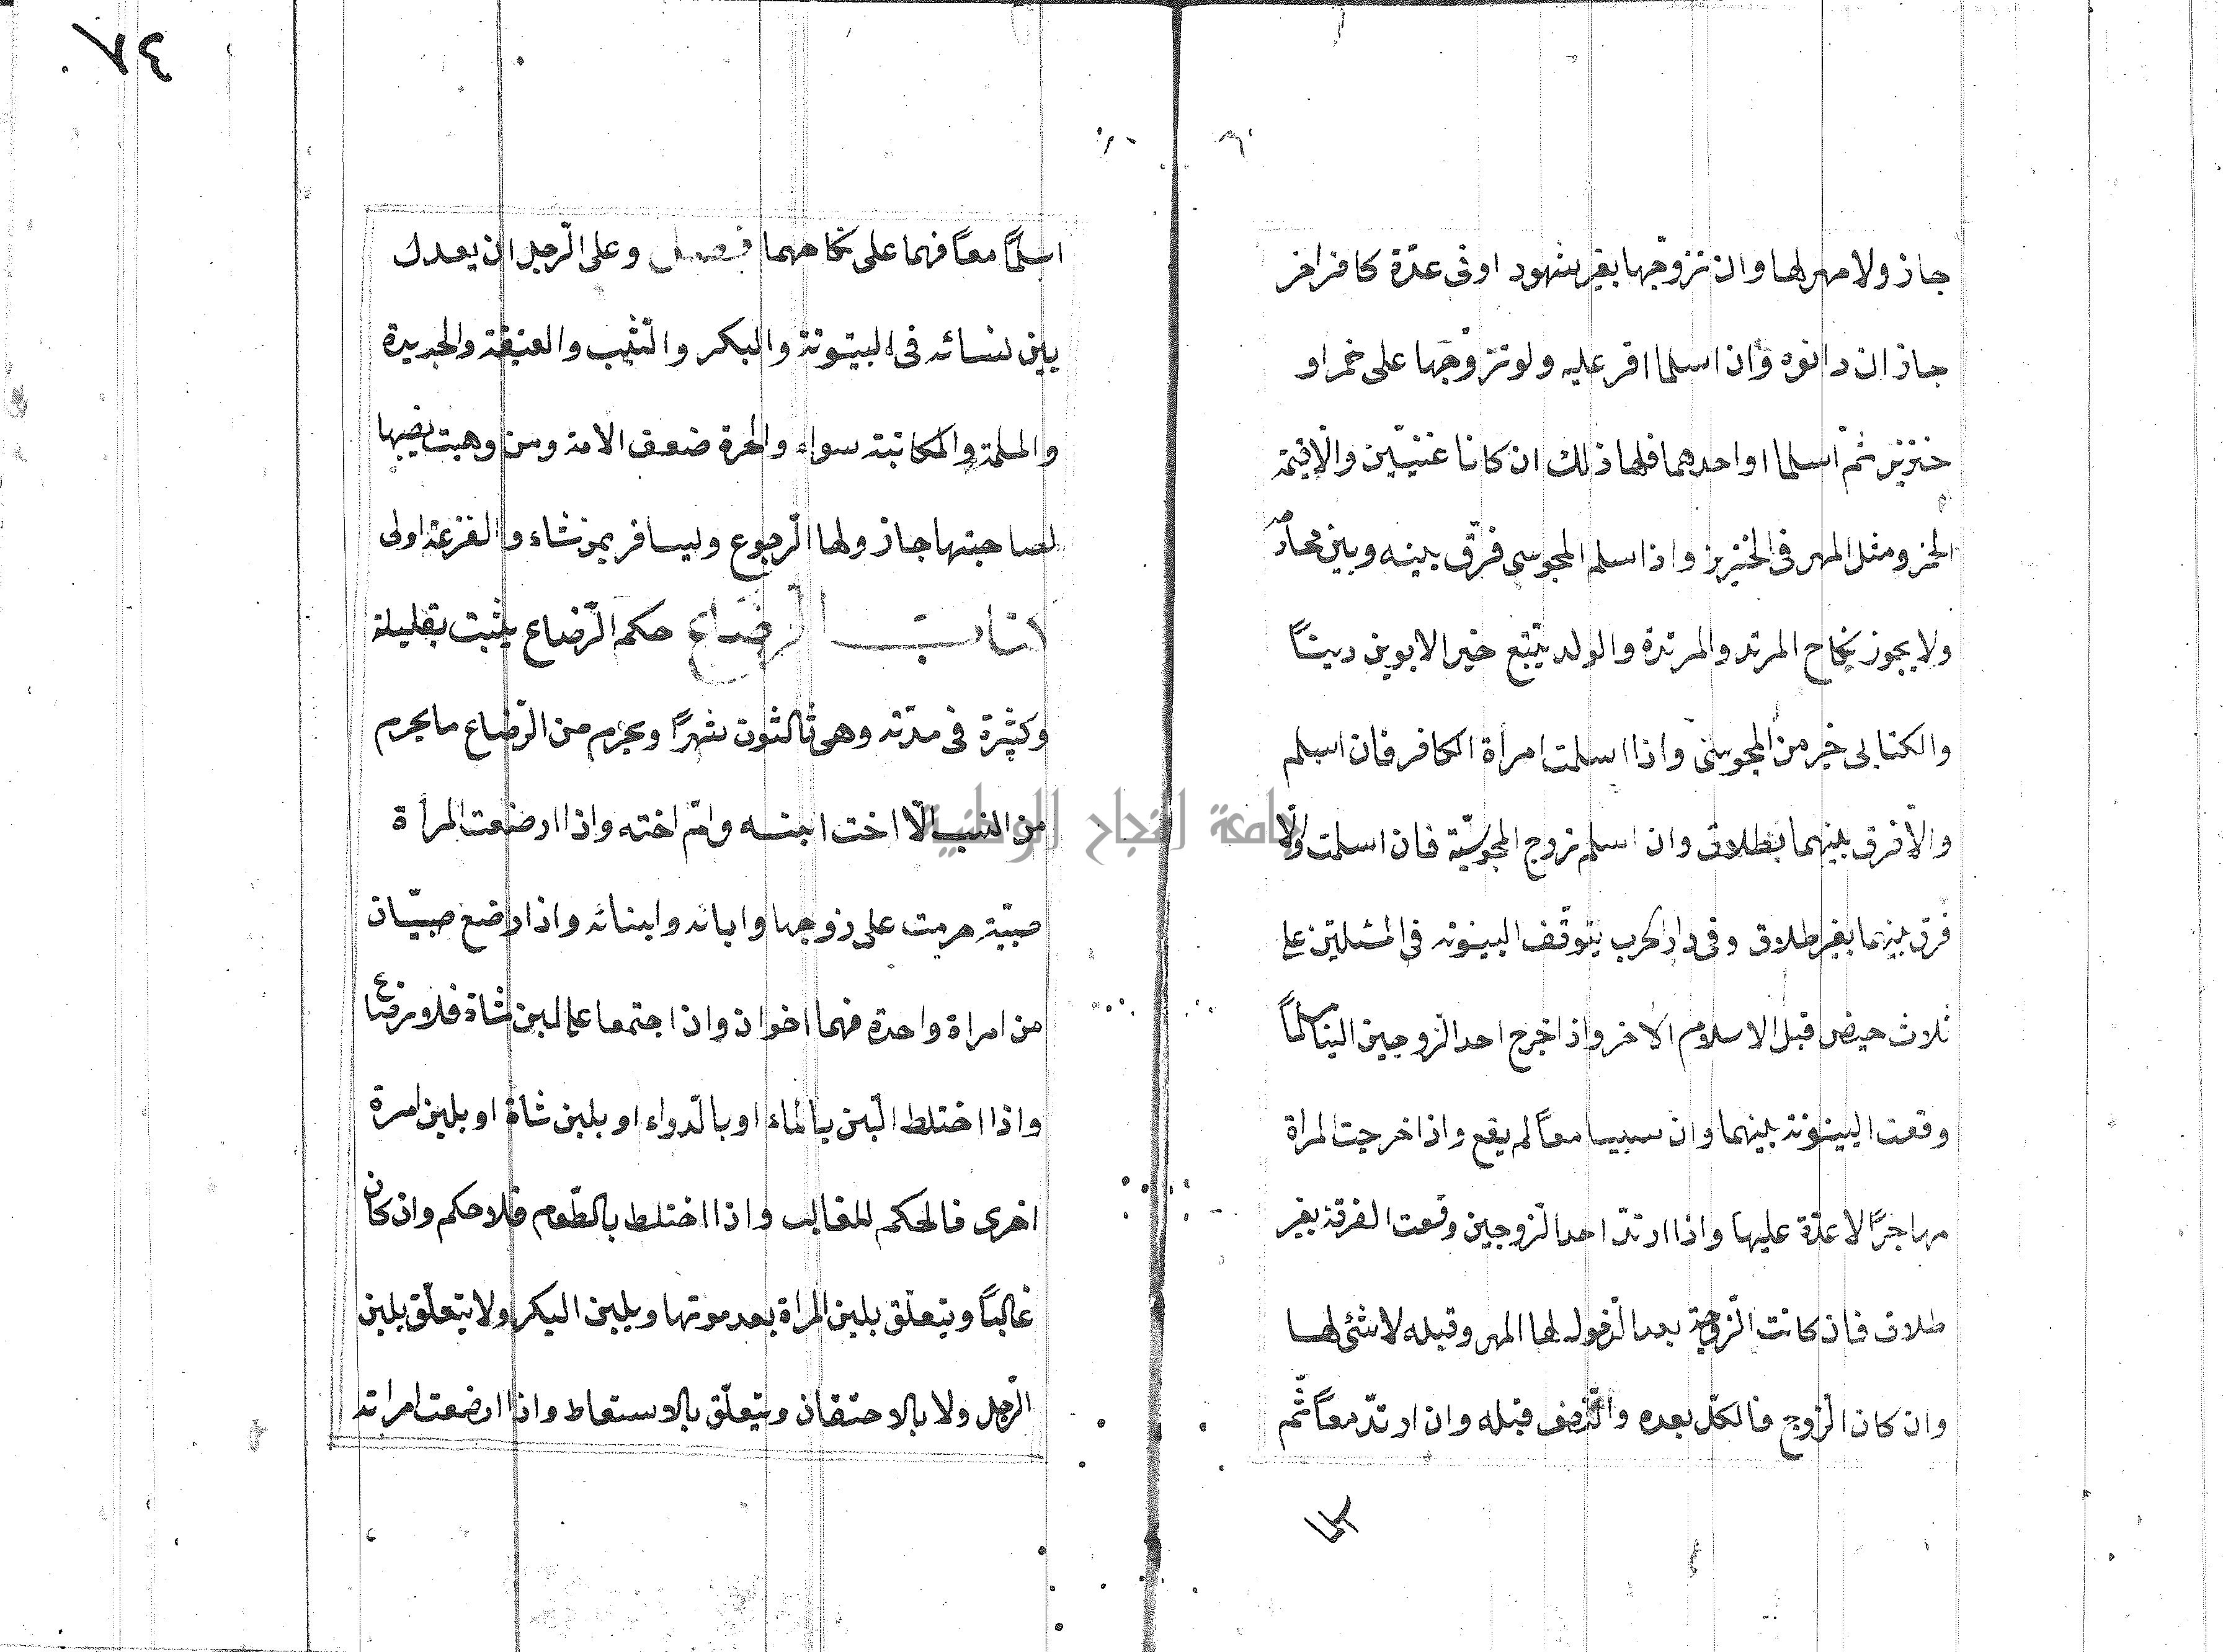 جاز ولا مهر لها وان تزوّجها بغير شهود او فى عدّة كافر اخر
جاز ان دانوه وان اسلما اقر عليه ولو تزوّجها على خمر او
خنزير ثمّ اسلما او احدهما فلها ذلك ان كانا عنيّين والّا قيمة
الخمر ومثل المهر فى الخنزير واذا سلم المجوسى فرّق بينه وبين محارمه
ولا يجوز نكاح المرتد والمرتدة والولد يتبع خير الابوين ديناً
والكتابى خير من المجوسى واذا اسلمت امرأة الكافر فان اسلم
والّا فرق بينهما بطلاق وان اسلم زوج المجوسيّة فان اسلمت والّا
فرق بينهما بغير طلاق وفى دار الحرب يتوقّف البينونه فى المسئلتين على
ثلاث حيض قبل الاسلام الاخر واذ اخرج احد الزّوجين الينا مسلماً
وقعت البينونة بينهما وان سبيا معاً لم يقع واذا خرجت المراة
مهاجرًا لا عدّة عليها واذا ارتدّ احد الزّوجين وقعت الفرقة بغير
طلاق فان كانت الزّوجة بعد الدّخول لها المهر وقبله لا شئ لها
وان كان الزّوج فالكلّ بعده والنّصف قبله وان ارتدّ معاً ثمّ
٤٧
اسلما معاً فهما على نكاحهما فصل وعلى الرّجل ان يعدل
بين نسائه فى البيتوتة والبكر والثّيب والعتيقة والجديدة
والمسلمة والمكاتبة سواء والحرة ضعف الامة ومن وهبت نصيبها
لصاحبتها جاز ولها الرّجوع ويسافر بمن شاء والقرعة اولى
كتاب الرّضاع حكم الرّضاع يثبت بقليله
وكثيرة فى مدّته وهى ثالثون شهرًا ويحرم من الرّضاع ما يحرم
من النسب الّا اخت ابنه وامّ اخته واذا ارضعت المرأة
صبيّة حرمت على زوجها وابائه وابنائه واذا ارضع صبيّان
من امراة واحدة فهما اخوان وان اجتمعا على لبن شاة فلا رضاع
واذا اختلط الّبن بالماء او بالدّواء او بلبن شاة او بلبن امرة
اخرى فالحكم للغالب واذا اختلط بالطّعام فلا حكم وان كان
غالبًا ويتعلّق بلبن المراة بعد موتها وبلبن البكر ولا يتعلّق بلبن
الرّجل ولا بالاحتقان ويتعلّق بالاستعاط واذا ارضعت امراته
جامعة النجاح الوطنية